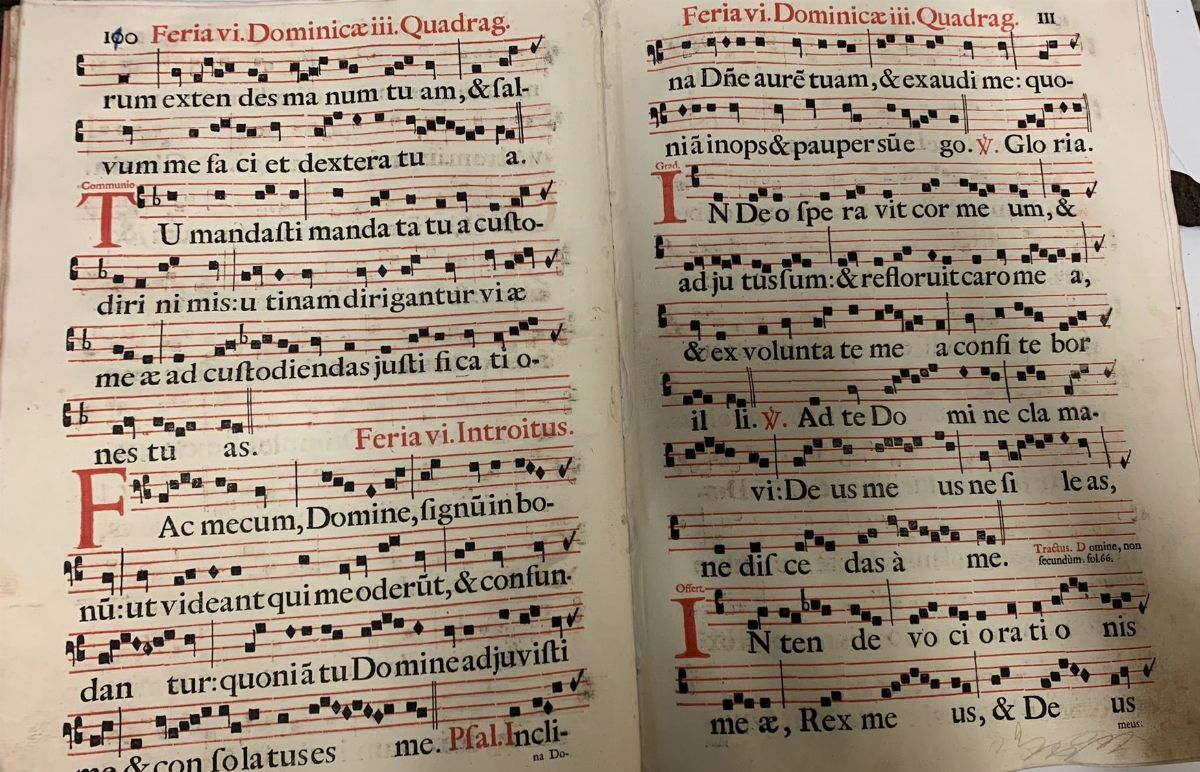 100 Feria vi. Dominicæ iii. Quadrag.
rum exten des ma num tu am, & ſal-
vum me fa ci et dextera tu a.
Communio
TU mandaſti manda ta tu a cuſto-
diri ni mis: u tinam dirigantur vi æ
me æ ad cuſtodiendas juſti fi ca ti o-
nes tu as. Feria vi. Introitus.
FAc mecum, Domine, ſignū in bo-
nū: ut videant qui me oderūt, & confun-
dan tur: quoni ā tu Domine adjuviſti
me & con ſo latus es me. Pſal. Incli-
na Do-
Feria vi. Dominicæ iii. Quadrag. III
na Dñe aurē tuam, & exaudi me: quo-
ni ā inops & pauper sū e go. ℣. Glo ria.
Grad.
IN De o ſpe ra vit cor me um, &
ad ju tus ſum: & refloruit caro me a,
& ex volunta te me a confi te bor
il li. ℣. Ad te Do mi ne cla ma-
vi: De us me us ne ſi le as,
ne diſ ce das à me. Tractus. D omine, non
ſecundùm. fol. 66.
Offert.
IN ten de vo ci o ra ti o nis
me æ, Rex me us, & De us
meus: